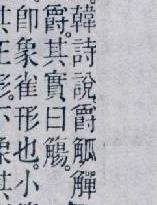 韓詩說爵觚觶
爵其實曰觴
卽象雀形也小